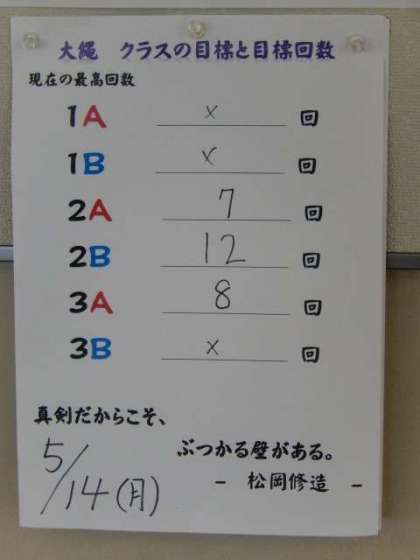 大縄 クラスの目標と目標回数
現在の最高回数
1A x 回
1B x 回
2A 7 回
2B 12 回
3A 8 回
3B x 回
真剣だからこそ、
ぶつかる壁がある。
- 松岡修造 -
5/14(月)